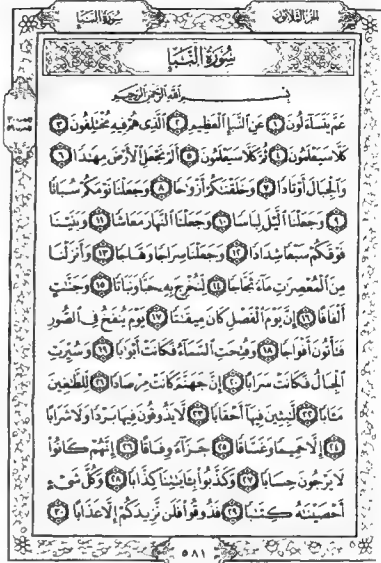 سُورَةُ النَّبَإِ
الجزء الثلاثون
سُورَةُ النَّبَإِ
بِسْمِ اللَّهِ الرَّحْمَٰنِ الرَّحِيمِ
عَمَّ يَتَسَآءَلُونَ ١ عَنِ النَّبَإِ الْعَظِيمِ ٢ الَّذِى هُمْ فِيهِ مُخْتَلِفُونَ ٣
كَلَّا سَيَعْلَمُونَ ٤ ثُمَّ كَلَّا سَيَعْلَمُونَ ٥ أَلَمْ نَجْعَلِ الْأَرْضَ مِهَٰدًا ٦
وَالْجِبَالَ أَوْتَادًا ٧ وَخَلَقْنَٰكُمْ أَزْوَٰجًا ٨ وَجَعَلْنَا نَوْمَكُمْ سُبَاتًا
٩ وَجَعَلْنَا الَّيْلَ لِبَاسًا ١٠ وَجَعَلْنَا النَّهَارَ مَعَاشًا ١١ وَبَنَيْنَا
فَوْقَكُمْ سَبْعًا شِدَادًا ١٢ وَجَعَلْنَا سِرَاجًا وَهَّاجًا ١٣ وَأَنزَلْنَا
مِنَ الْمُعْصِرَٰتِ مَآءً ثَجَّاجًا ١٤ لِّنُخْرِجَ بِهِ حَبًّا وَنَبَاتًا ١٥ وَجَنَّٰتٍ
أَلْفَافًا ١٦ إِنَّ يَوْمَ الْفَصْلِ كَانَ مِيقَٰتًا ١٧ يَوْمَ يُنفَخُ فِى الصُّورِ
فَتَأْتُونَ أَفْوَاجًا ١٨ وَفُتِحَتِ السَّمَآءُ فَكَانَتْ أَبْوَٰبًا ١٩ وَسُيِّرَتِ
الْجِبَالُ فَكَانَتْ سَرَابًا ٢٠ إِنَّ جَهَنَّمَ كَانَتْ مِرْصَادًا ٢١ لِّلطَّٰغِينَ
مَـَٔابًا ٢٢ لَّٰبِثِينَ فِيهَآ أَحْقَابًا ٢٣ لَّا يَذُوقُونَ فِيهَا بَرْدًا وَلَا شَرَابًا
٢٤ إِلَّا حَمِيمًا وَغَسَّاقًا ٢٥ جَزَآءً وِفَاقًا ٢٦ إِنَّهُمْ كَانُوا۟
لَا يَرْجُونَ حِسَابًا ٢٧ وَكَذَّبُوا۟ بِـَٔايَٰتِنَا كِذَّابًا ٢٨ وَكُلَّ شَىْءٍ
أَحْصَيْنَٰهُ كِتَٰبًا ٢٩ فَذُوقُوا۟ فَلَن نَّزِيدَكُمْ إِلَّا عَذَابًا ٣٠
٥٨١